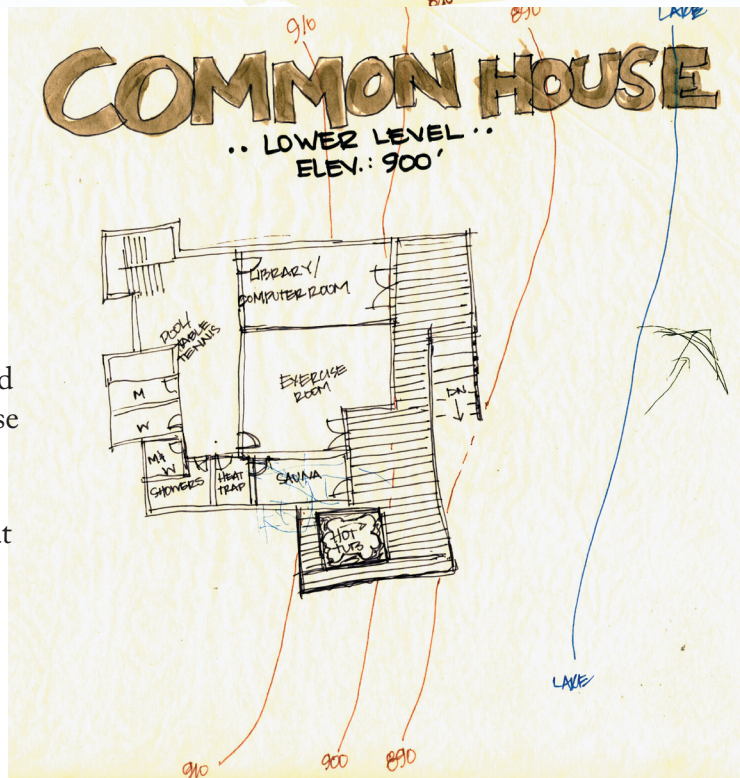 910
890
LAKE
COMMON HOUSE
.. LOWER LEVEL ..
ELEV.: 900'
LIBRARY/
COMPUTER ROOM
POOL/
TABLE
TENNIS
EXERCISE
ROOM
DN
M
W
M &
W
SHOWERS
HEAT
TRAP
SAUNA
HOT
TUB
LAKE
910
900
890